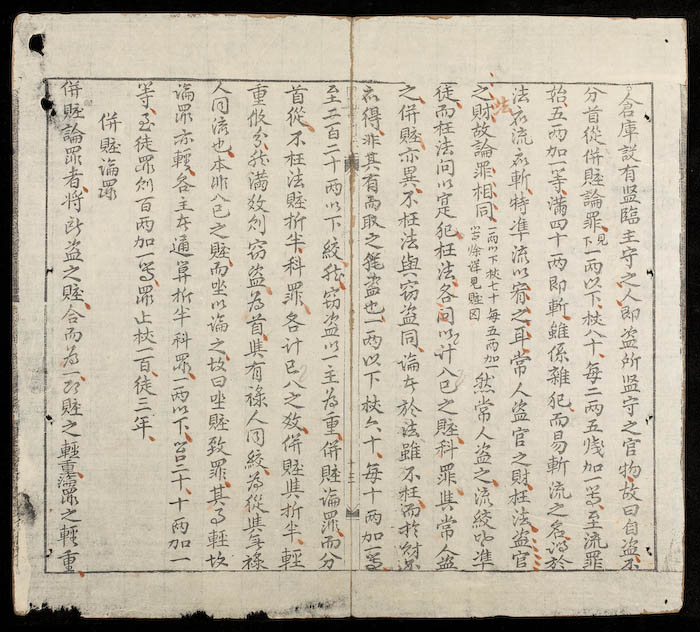 倉庫設有監臨主守之人即盜所監守之官物故曰自盜不
分首從併贓論罪見下一兩以下杖八十每二兩五錢加一等至流罪
始五兩加一等滿四十兩即斬雖係雜犯而易斬流之名
法衣流衣斬特準流以宥之耳常人盜官之財枉法盜官
之財故論罪相同一兩以下杖七十每五兩加一等條詳見贓因然常人盜之流絞
徒而枉法問以定犯枉法各問以計入己之贓科罪與常人盜
之併贓亦異不枉法與竊盜同論於法雖不枉而於財
得非其有而取之盜也一兩以下杖六十每十兩加一等
至二百二十兩以下絞竊盜以一主為重併贓論罪而分
首從不枉法贓折半科罪各計己入之數併贓與折半輕
重攸分滿數則竊盜為首與有祿人同絞為從與無祿
人同流也本非入己之贓而坐以論之故曰坐贓致罪其事輕故
論罪亦輕各主者通算折半科罪一兩以下笞二十十兩加一
等至徒罪則百兩加一等罪止杖一百徒三年
併贓論罪
併贓論罪者將所盜之贓合而為一即贓之輕重論罪之輕重
十三